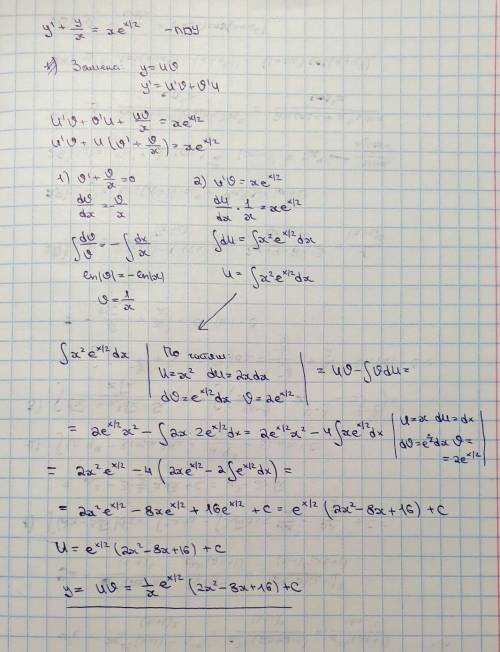 y' + y/x = xe^{x/2} - ЛДУ
1) Замена y = uϑ
y' = u'ϑ + ϑ'u
u'ϑ + ϑ'u + uϑ/x = xe^{x/2}
u'ϑ + u(ϑ' + ϑ/x) = xe^{x/2}
1) ϑ' + ϑ/x = 0
dϑ/dx = -ϑ/x
∫dϑ/ϑ = -∫dx/x
ln|ϑ| = -ln|x|
ϑ = 1/x
2) u'ϑ = xe^{x/2}
du/dx · 1/x = xe^{x/2}
∫du = ∫x²e^{x/2}dx
u = ∫x²e^{x/2}dx
∫x²e^{x/2}dx | По частям: u = x² du = 2xdx dϑ = e^{x/2}dx ϑ = 2e^{x/2} | = uϑ - ∫ϑdu =
= 2e^{x/2}x² - ∫2x·2e^{x/2}dx = 2e^{x/2}x² - 4∫xe^{x/2}dx | u = x du = dx dϑ = e^{x/2}dx ϑ = = 2e^{x/2} |
= 2x²e^{x/2} - 4(2xe^{x/2} - 2∫e^{x/2}dx) =
= 2x²e^{x/2} - 8xe^{x/2} + 16e^{x/2} + C = e^{x/2}(2x² - 8x + 16) + C
u = e^{x/2}(2x² - 8x + 16) + C
y = uϑ = 1/x e^{x/2}(2x² - 8x + 16) + C